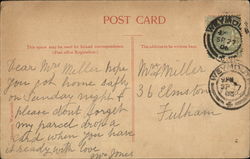 POST CARD
This space may be used for Inland correspondence
(Post office Regulation)
The address to be written here
Dear Mrs Miller hope
you got home safely
on Sunday night &
please don't forget
my parcel drop a
card when you have
it ready with love
Mrs Jones
Mrs Miller
36 Elmstone
Fulham